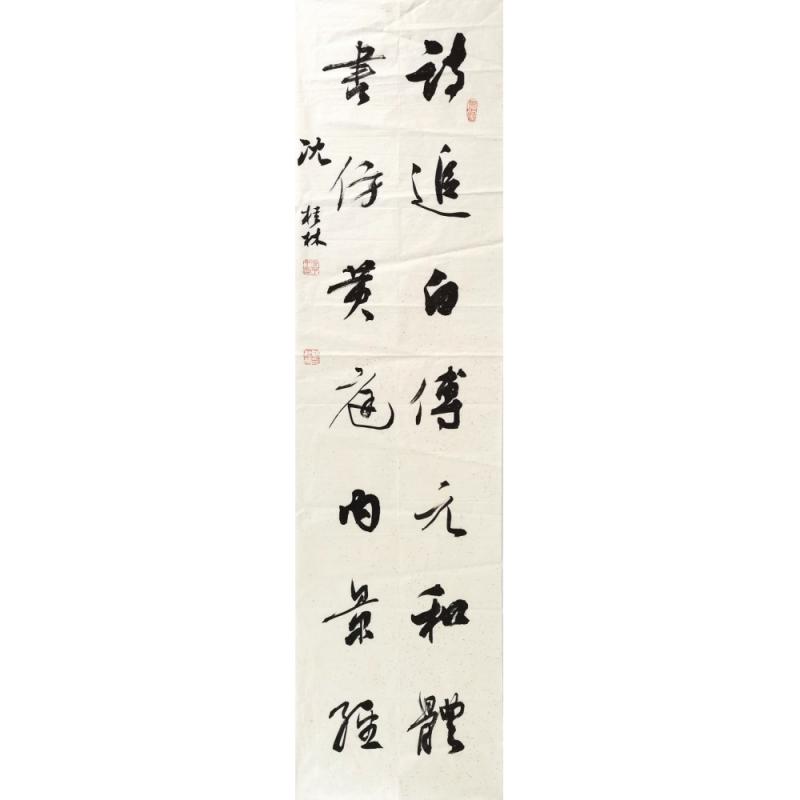 詩追白傅元和體
書仿黄庭内景經
沈桂林